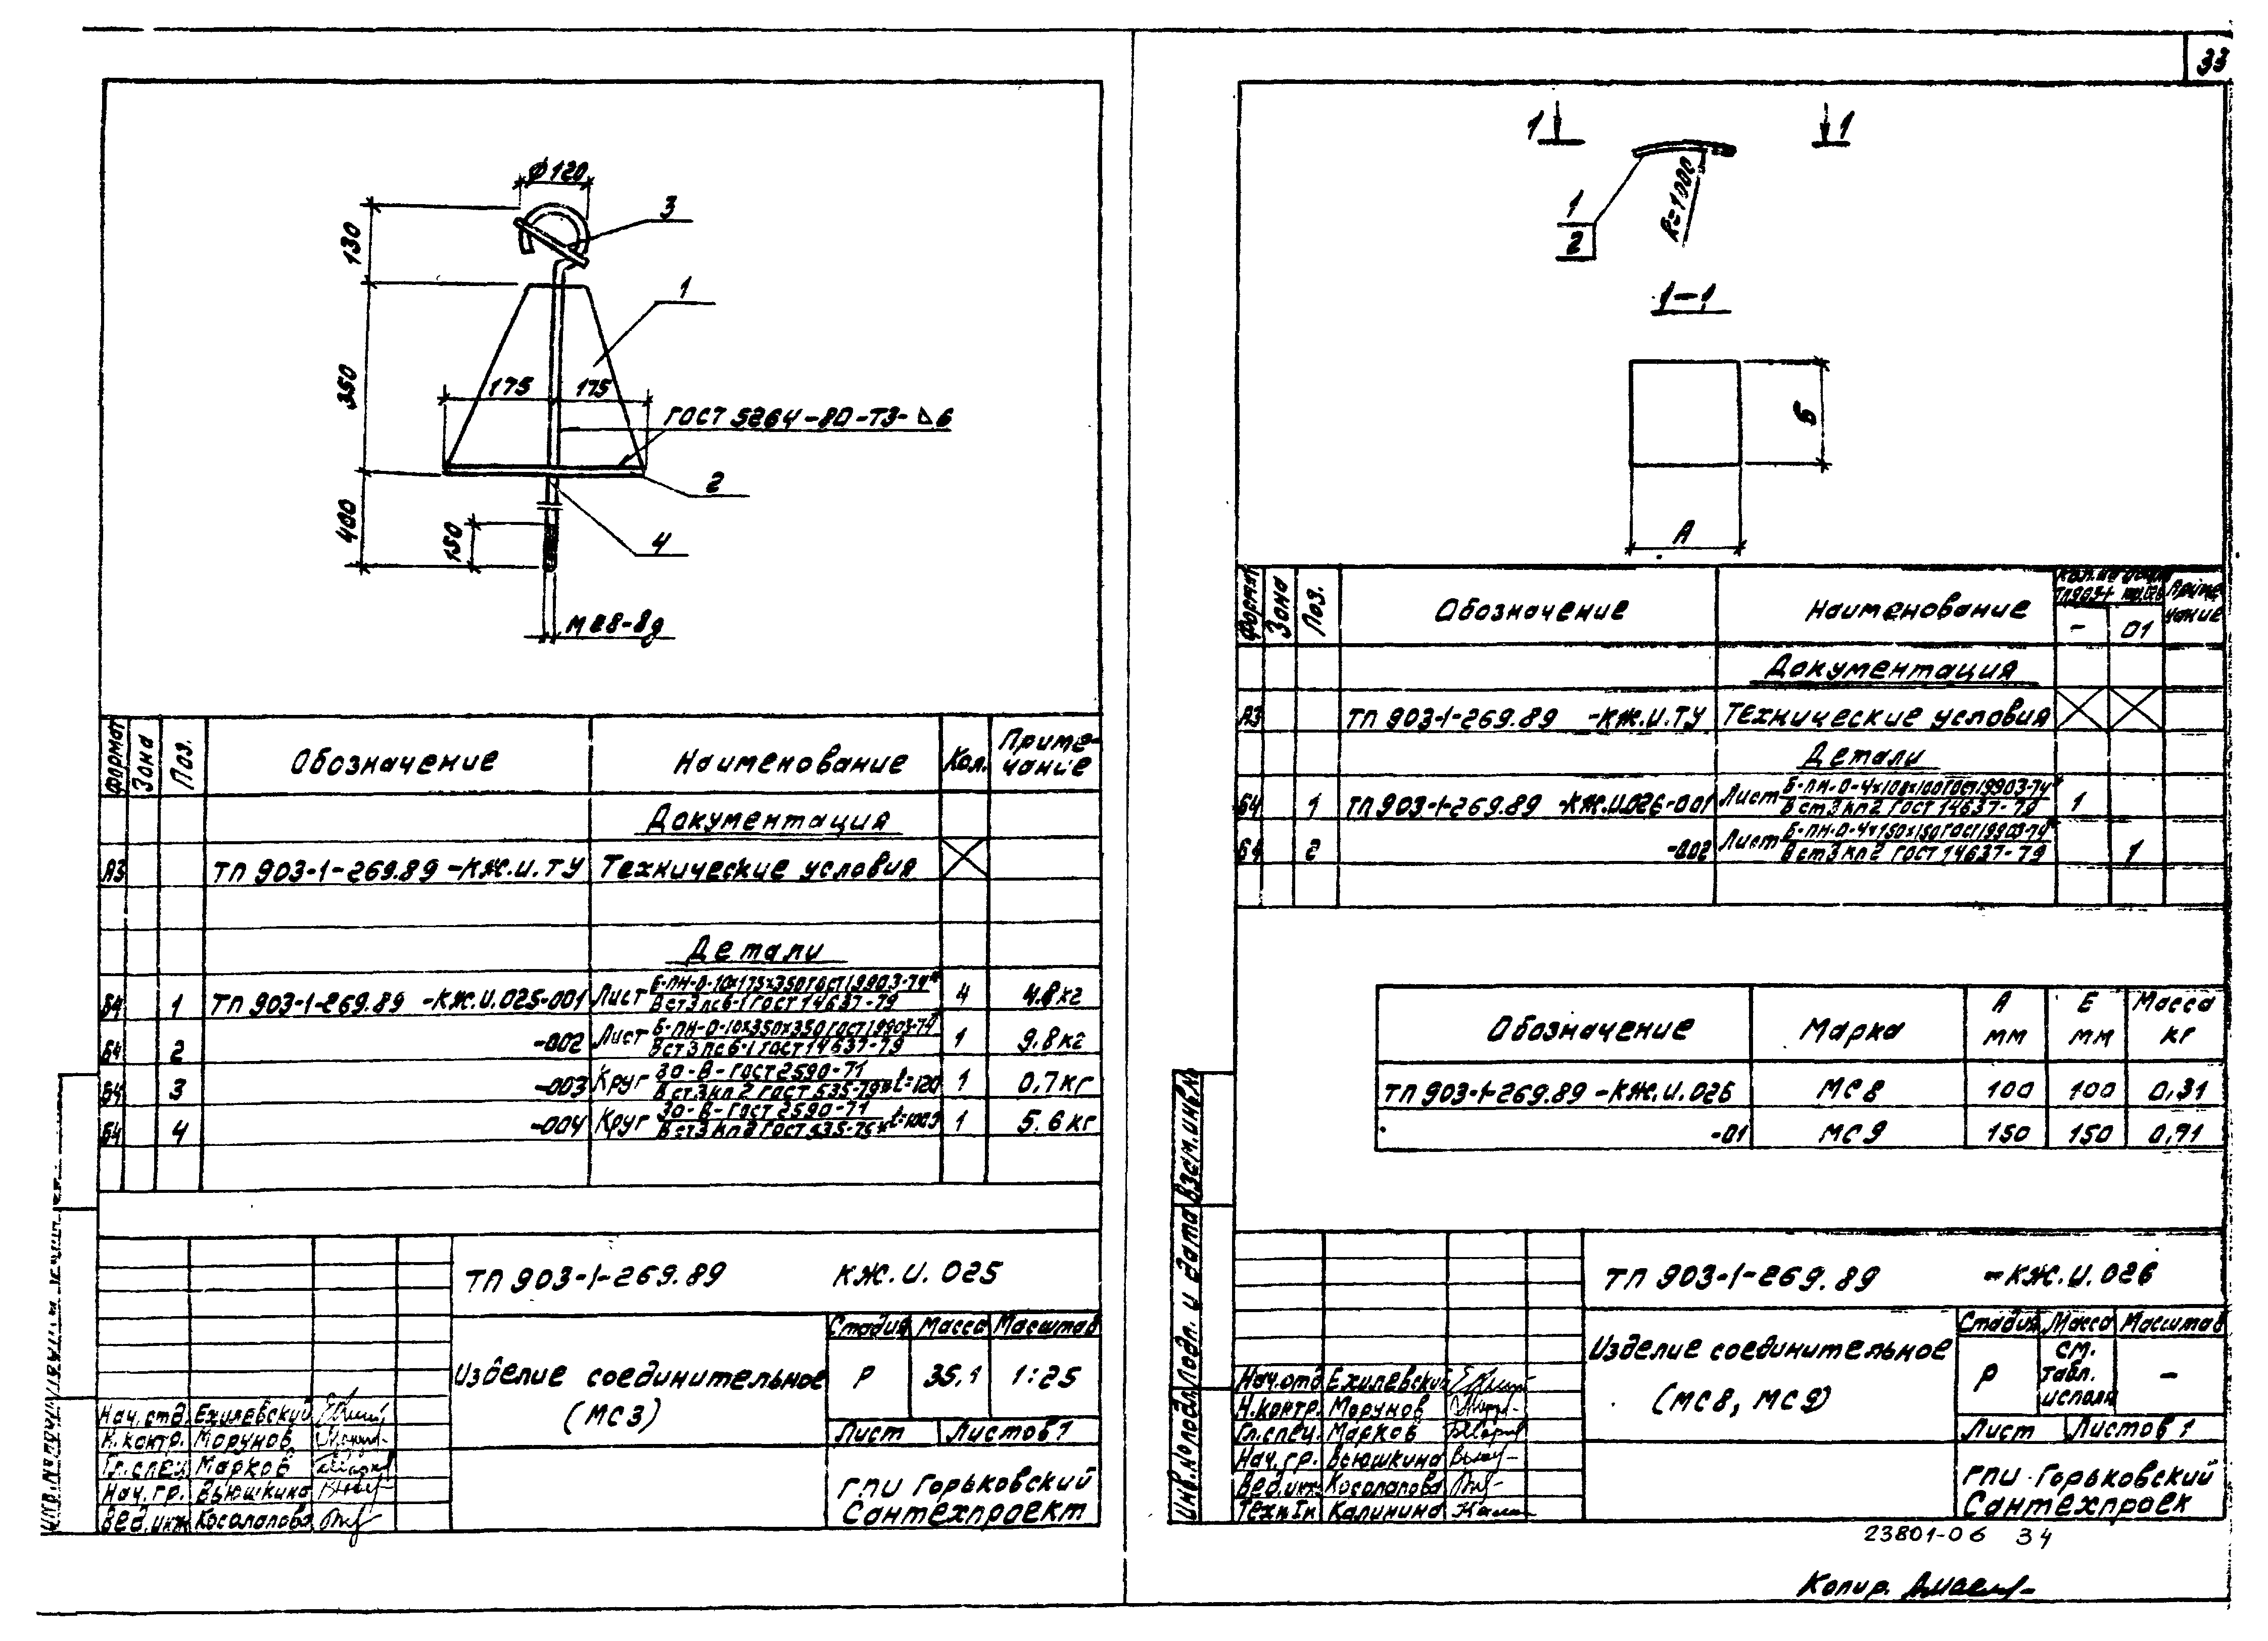 33
Ф120
3
130
1
350
175
175
ГОСТ 5264-80-Т3-△6
2
400
150
4
М28-8g
Формат
Зона
Поз.
Обозначение
Наименование
Кол.
Приме-
чание
Документация
А3 ТП 903-1-269.89 -КЖ.И.ТУ Технические условия
Детали
Б4 1 ТП 903-1-269.89 -КЖ.И.025-001 Лист Б-ПН-О-10х175х350 ГОСТ 19903-74* 4 4.8 кг
ВСт3пс6-1 ГОСТ 14637-79
Б4 2 -002 Лист Б-ПН-О-10х350х350 ГОСТ 19903-74* 1 9.8 кг
ВСт3пс6-1 ГОСТ 14637-79
Б4 3 -003 Круг 30-В-ГОСТ 2590-71 ℓ=120 1 0,7 кг
ВСт3кп2 ГОСТ 535-79
Б4 4 -004 Круг 30-В-ГОСТ 2590-71 1 5.6 кг
ВСт3кп2 ГОСТ
ТП 903-1-269.89 КЖ.И.025
Изделие соединительное
(МС3)
Стадия Масса Масштаб
Р 35,1 1:25
Лист Листов 1
ГПИ Горьковский
Сантехпроект
Нач.отд. Ехилевский
Н.контр. Морунов
Гл.спец Марков
Нач.гр. Вьюшкина
Вед.инж Косолапова
1 1
1
2
R=1000
1-1
Б
А
Формат
Зона
Поз.
Обозначение
Наименование
- 01
Приме
чание
Документация
А3 ТП 903-1-269.89 -КЖ.И.ТУ Технические условия
Детали
Б4 1 ТП 903-1-269.89 -КЖ.И.026-001 Лист Б-ПН-О-4х100х100 ГОСТ 19903-74* 1
ВСт3кп2 ГОСТ 14637-79
Б4 2 -002 Лист Б-ПН-О-4х150х150 ГОСТ 19903-74* 1
ВСт3кп2 ГОСТ 14637-79
Обозначение Марка А мм Е мм Масса кг
ТП 903-1-269.89 -КЖ.И.026 МС8 100 100 0,31
-01 МС9 150 150 0,71
Взам.инв.№
Подп. и дата
Инв.№ подл.
ТП 903-1-269.89 -КЖ.И.026
Изделие соединительное
(МС8, МС9)
Стадия Масса Масштаб
Р см. табл. исполн -
Лист Листов 1
ГПИ Горьковский
Сантехпроек
Нач.отд Ехилевский
Н.контр. Морунов
Гл.спец. Марков
Нач.гр. Вьюшкина
Вед.инж. Косолапова
Техн.Iк Калинина
23801-06 34
Копир.